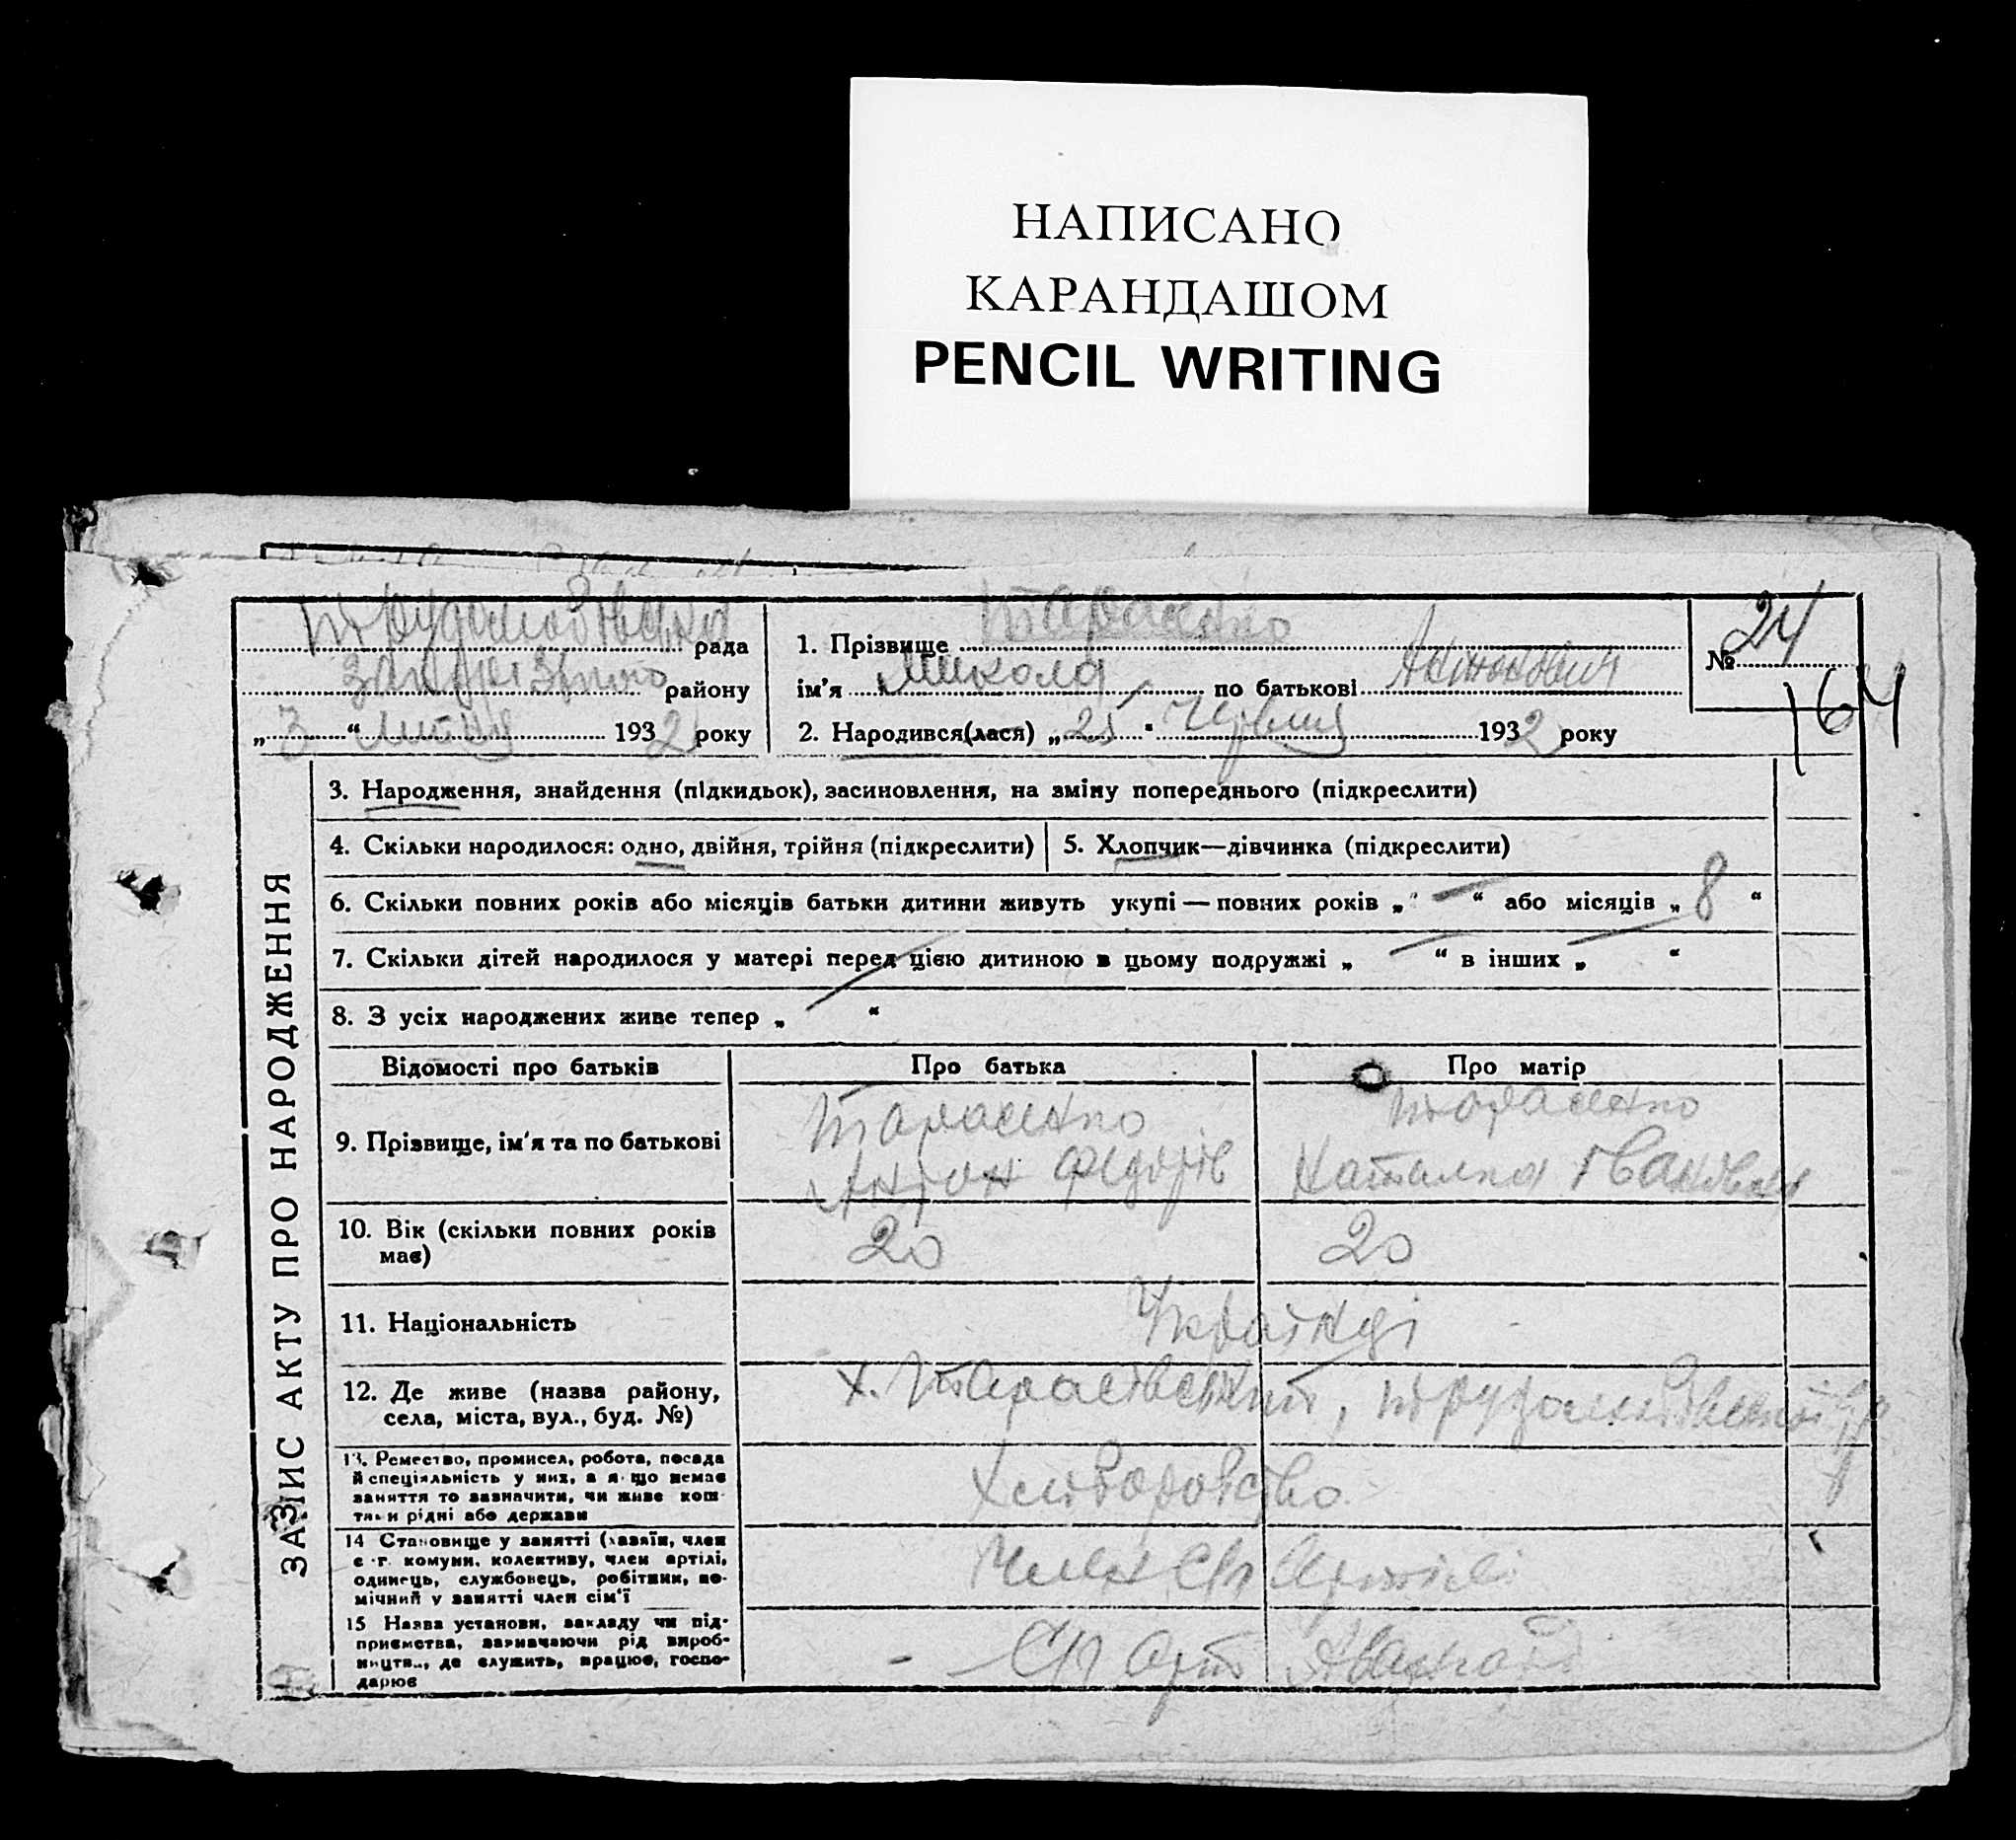 НАПИСАНО
КАРАНДАШОМ
PENCIL WRITING
рада
району
„3“ липня 1932 року
1. Прізвище Тарасенко
ім'я Микола по батькові Антонович
2. Народився(лася) „25“ червня 1932 року
№ 24
164
ЗАПИС АКТУ ПРО НАРОДЖЕННЯ
3. Народження, знайдення (підкидьок), засиновлення, на зміну попереднього (підкреслити)
4. Скільки народилося: одно, двійня, трійня (підкреслити)
5. Хлопчик—дівчинка (підкреслити)
6. Скільки повних років або місяців батьки дитини живуть укупі — повних років „ — “ або місяців „ 8 “
7. Скільки дітей народилося у матері перед цією дитиною в цьому подружжі „ — “ в інших „ — “
8. З усіх народжених живе тепер „ — “
Відомості про батьків Про батька Про матір
9. Прізвище, ім'я та по батькові
Тарасенко
Антон Федорів
Тарасенко
Наталка Іванівна
10. Вік (скільки повних років має)
20 20
11. Національність
Українці
12. Де живе (назва району, села, міста, вул., буд. №)
х. Тарасівський,
13. Ремество, промисел, робота, посада
й спеціяльність у них, а якщо немає
заняття то зазначити, чи живе кош-
тами рідні або держави
Хліборобство
14 Становище у занятті (хазяїн, член
с.-г. комуни, колективу, член артілі,
одинець, службовець, робітник, по-
мічний у занятті член сім'ї
Член С/г Артілі
15 Назва установи, закладу чи під-
приємства, зазначаючи рід вироб-
ництва, де служить, працює, госпо-
дарює
С/г Арт Авангард